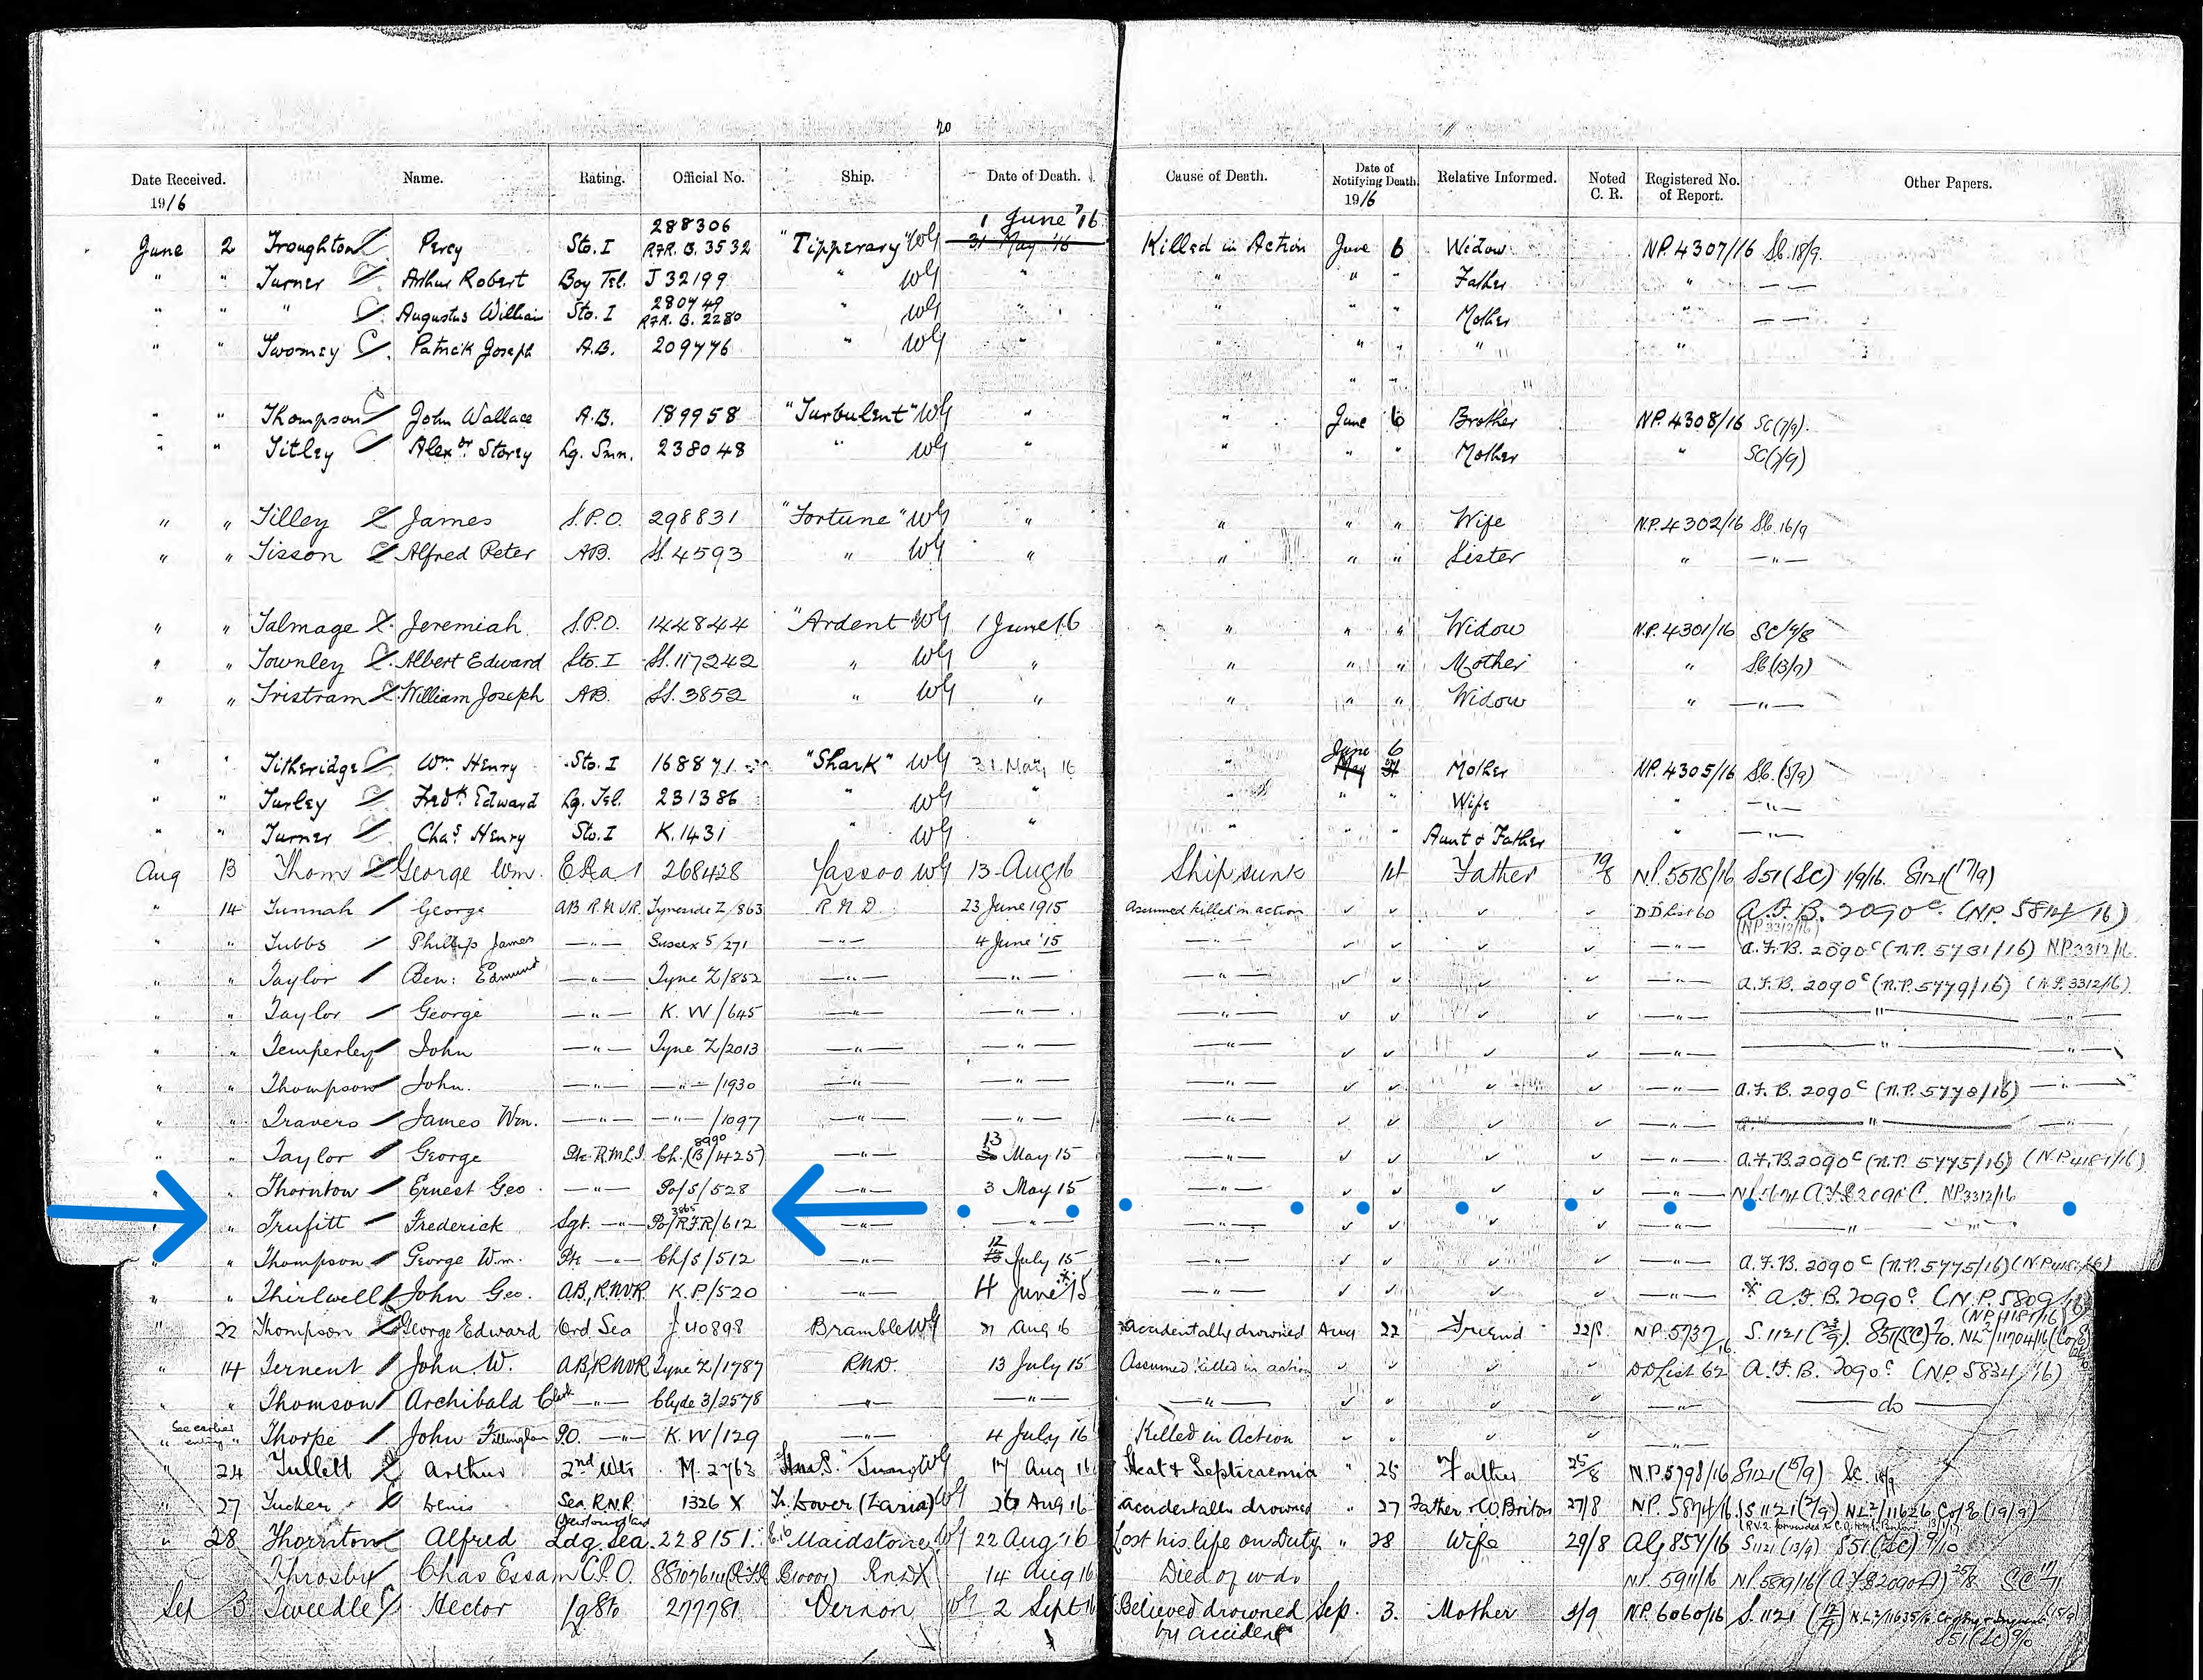 20
Date Received. Name. Rating. Official No. Ship. Date of Death. Cause of Death. Date of Notifying Death Relative Informed. Noted C. R. Registered No. of Report. Other Papers.
1916 1916
June 2 Troughton Percy Sto. I 288306 RFR. B. 3532 "Tipperary" WG 1 June '16 31 May '16 Killed in Action June 6 Widow NP. 4307/16 Sb. 18/9
" " Turner Arthur Robert Boy Tel. J 32199 " WG " " " " Father " — —
" " " Augustus William Sto. I 280749 RFR. B. 2280 " WG " " " " Mother " — —
" " Twomey Patrick Joseph A.B. 209776 " WG " " " " " "
" "
" " Thompson John Wallace A.B. 189958 "Turbulent" WG " " June 6 Brother NP. 4308/16 SC (7/9).
" " Titley Alexdr. Storey Lg. Smn. 238048 " WG " " " " Mother " SC (7/9)
" " Tilley James S.P.O. 298831 "Fortune" WG " " " " Wife N.P. 4302/16 Sb. 16/9
" " Tisson Alfred Peter AB. SS. 4593 " WG " " " " Sister " — " —
" " Talmage Jeremiah S.P.O. 144844 "Ardent WG 1 June 16 " " " Widow N.P. 4301/16
" " Townley Albert Edward Sto. I SS. 117242 " WG " " " " Mother " Sb (13/9)
" " Tristram William Joseph AB. SS. 3852 " WG " " " " Widow " — " —
" " Titheridge Wm Henry Sto. I 168871 "Shark" WG 31 May 16 " June 6 May 31 Mother NP. 4305/16 Sb. (5/9)
" " Turley Fredk Edward Lg. Tel. 231386 " WG " " " " Wife " — " —
" " Turner Chas Henry Sto. I K. 1431 " WG " " " " Aunt & Father " — " —
Aug 13 Thom George Wm. ERA 1 268428 Lassoo WG 13 Aug 16 Ship sunk 14 Father 19/8 NP. 5518/16 S51 (SC) 1/9/16. S1121 (17/9)
" 14 Tunnah George AB R.N.V.R. Tyneside Z/863 R.N.D. 23 June 1915 Assumed killed in action ✓ ✓ ✓ ✓ DD List 60 A.F.B. 2090c. (NP. 5814/16)
(NP 3312/16)
" " Tubbs Phillip James — " — Sussex 5/271 — " — 4 June '15 — " — ✓ ✓ ✓ ✓ — " — A.F.B. 2090c (N.P. 5731/16) NP 3312/16
" " Taylor Ben: Edmund — " — Tyne Z/852 — " — — " — — " — ✓ ✓ ✓ ✓ — " — A.F.B. 2090c (N.P. 5779/16) (N.P. 3312/16)
" " Taylor George — " — K. W/645 — " — — " — — " — ✓ ✓ ✓ ✓ — " — — " — — " —
" " Temperley John — " — Tyne Z/2013 — " — — " — — " — ✓ ✓ ✓ ✓ — " — — " — — " —
" " Thompson John. — " — — " — /1930 — " — — " — — " — ✓ ✓ ✓ ✓ — " — A.F.B. 2090c (N.P. 5778/16) — " —
" " Travers James Wm. — " — — " — /1097 — " — — " — — " — ✓ ✓ ✓ ✓ — " — — " — — " —
" " Taylor George Pte. R.M.L.I. Ch. 8990 (B/1425) — " — 13 May 15 — " — ✓ ✓ ✓ ✓ — " — A.F.B. 2090c (N.P. 5775/16) (N.P. 4181/16)
" " Thornton Ernest Geo. — " — Po/S/528 — " — 3 May 15 — " — ✓ ✓ ✓ ✓ — " — AFB 2090 C. NP 3312/16
" " Trufitt Frederick Sgt. — " — Po/3865 R.F.R/612 — " — — " — ✓ ✓ — " — — " — — " —
" " Thompson George Wm. Pte — " — Ch/S/512 — " — 12 July 15 — " — ✓ ✓ ✓ ✓ — " — A.F.B. 2090c (N.P. 5775/16)
" " Thirlwell John Geo. AB, R.N.V.R. K.P/520 — " — 4 June* 15 — " — ✓ ✓ ✓ ✓ — " — * A.F.B. 2090c. (N.P. 5809/16)
(NP. 4181/16)
" 22 Thompson George Edward Ord Sea J 40898 Bramble WG 21 Aug 16 Accidentally drowned Aug 22 Friend 22/8 NP. 5737/16 S. 1121 851(SC)
" 14 Ternent John W. AB, R.N.V.R. Tyne Z/1787 RND. 13 July 15 Assumed killed in action ✓ ✓ ✓ ✓ DD List 62 A.F.B. 2090c. (N.P. 5834/16)
" " Thomson Archibald Clark — " — Clyde 3/2578 — " — — " — — " — ✓ ✓ ✓ ✓ — " — — do —
See earlier entry
" " Thorpe John Fillingham P.O. — " — K. W/129 — " — 4 July 16 Killed in Action ✓ ✓ ✓ ✓ — " —
" 24 Tullett Arthur 2nd Wtr M. 2763 WG 17 Aug 16 Heat & Septicaemia " 25 Father 25/8 N.P. 5798/16 S1121 (15/9) Sc. 18/9
" 27 Tucker Denis Sea. R.N.R. (Newfoundland 1326 X Tr. Dover (Zaria) WG 26 Aug 16 accidentally drowned " 27 27/8 NP. 5874/16 S 1121 (7/9) NL2/11626 (19/9)
" 28 Thornton Alfred Ldg. Sea. 228151. Maidstone WG 22 Aug '16 Lost his life on Duty " 28 Wife 29/8 AG 857/16 S1121 (13/9) 851 (SC) 9/10
Throsby Chas Essam C.P.O. RND 14 Aug 16 Died of wds NP. 5911/16 NP. 5819/16 (AFB 2090A) 25/8 SC
Sep 3 Tweedle Hector Lg Sto 277781 Vernon WG 2 Sept 16 Believed drowned by accident Sep. 3. Mother 4/9 NP. 6060/16 S. 1121
851 (SC) 9/10